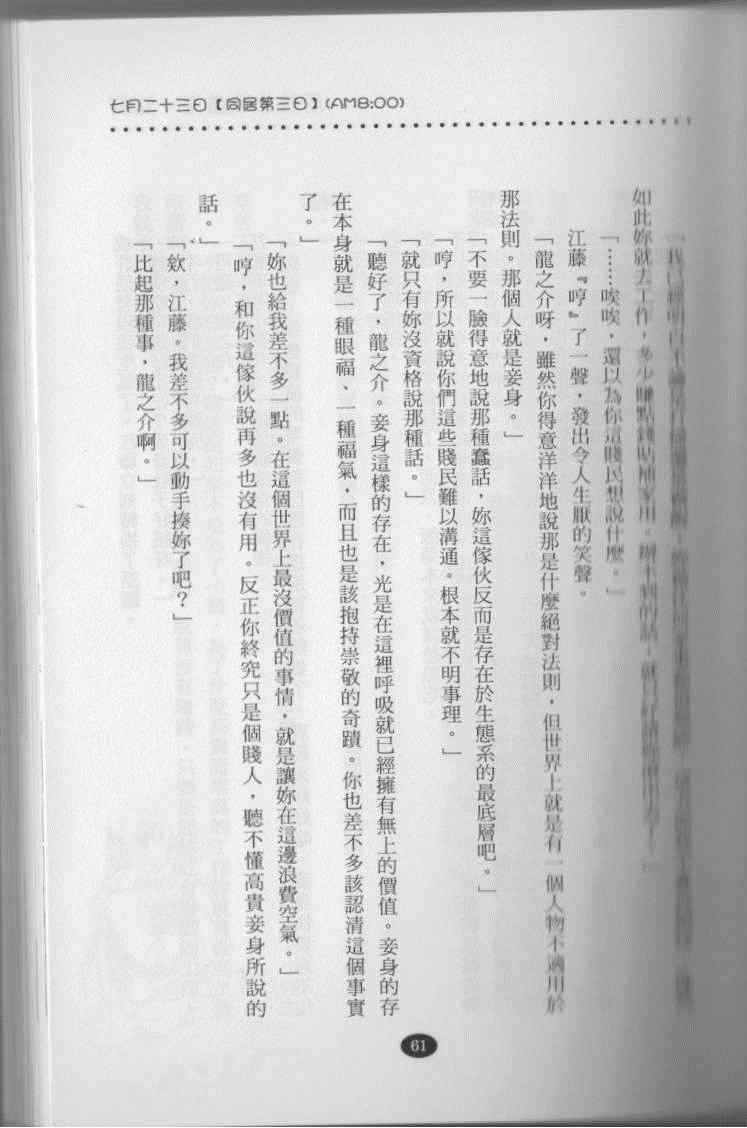 七月二十三日【同居第三日】(AM8:00)
「我已經明白
如此妳就去工作,多少賺點錢貼補家用。辦不到的話,就
「……唉唉,還以為你這賤民想說什麼。」
江藤『哼』了一聲,發出令人生厭的笑聲。
「龍之介呀,雖然你得意洋洋地說那是什麼絕對法則,但世界上就是有一個人物不適用於
那法則。那個人就是妾身。」
「不要一臉得意地說那種蠢話,妳這傢伙反而是存在於生態系的最底層吧。」
「哼,所以就說你們這些賤民難以溝通。根本就不明事理。」
「就只有妳沒資格說那種話。」
「聽好了,龍之介。妾身這樣的存在,光是在這裡呼吸就已經擁有無上的價值。妾身的存
在本身就是一種眼福、一種福氣,而且也是該抱持崇敬的奇蹟。你也差不多該認清這個事實
了。」
「妳也給我差不多一點。在這個世界上最沒價值的事情,就是讓妳在這邊浪費空氣。」
「哼,和你這傢伙說再多也沒有用。反正你終究只是個賤人,聽不懂高貴妾身所說的
話。」
「欸,江藤。我差不多可以動手揍妳了吧?」
「比起那種事,龍之介啊。」
61